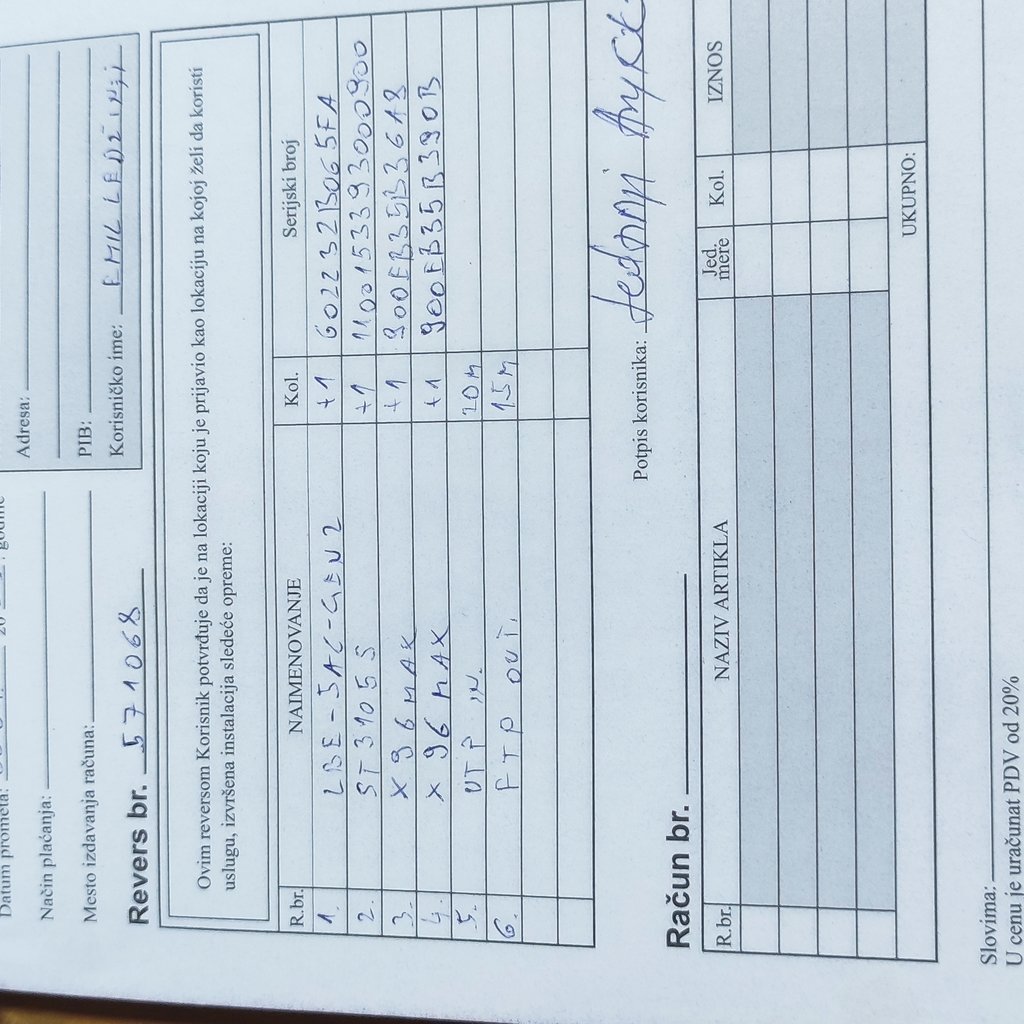 Datum prometa:
Način plaćanja:
Mesto izdavanja računa:
Adresa:
PIB:
Korisničko ime: EMIL
Revers br. 571068
Ovim reversom Korisnik potvrđuje da je na lokaciji koju je prijavio kao lokaciju na kojoj želi da koristi
uslugu, izvršena instalacija sledeće opreme:
R.br. NAIMENOVANJE Kol. Serijski broj
1. LBE-5AC-GEN2 +1 602232B065FA
2. ST3105S +1 1100153393000900
3. X96 MAX +1 900EB35B36A8
4. X96 MAX +1 900EB35B390B
5. UTP IN. 20M
6. FTP OUT. 15M
Potpis korisnika:
Račun br.
R.br. NAZIV ARTIKLA Jed. mere Kol. IZNOS
UKUPNO:
Slovima:
U cenu je uračunat PDV od 20%